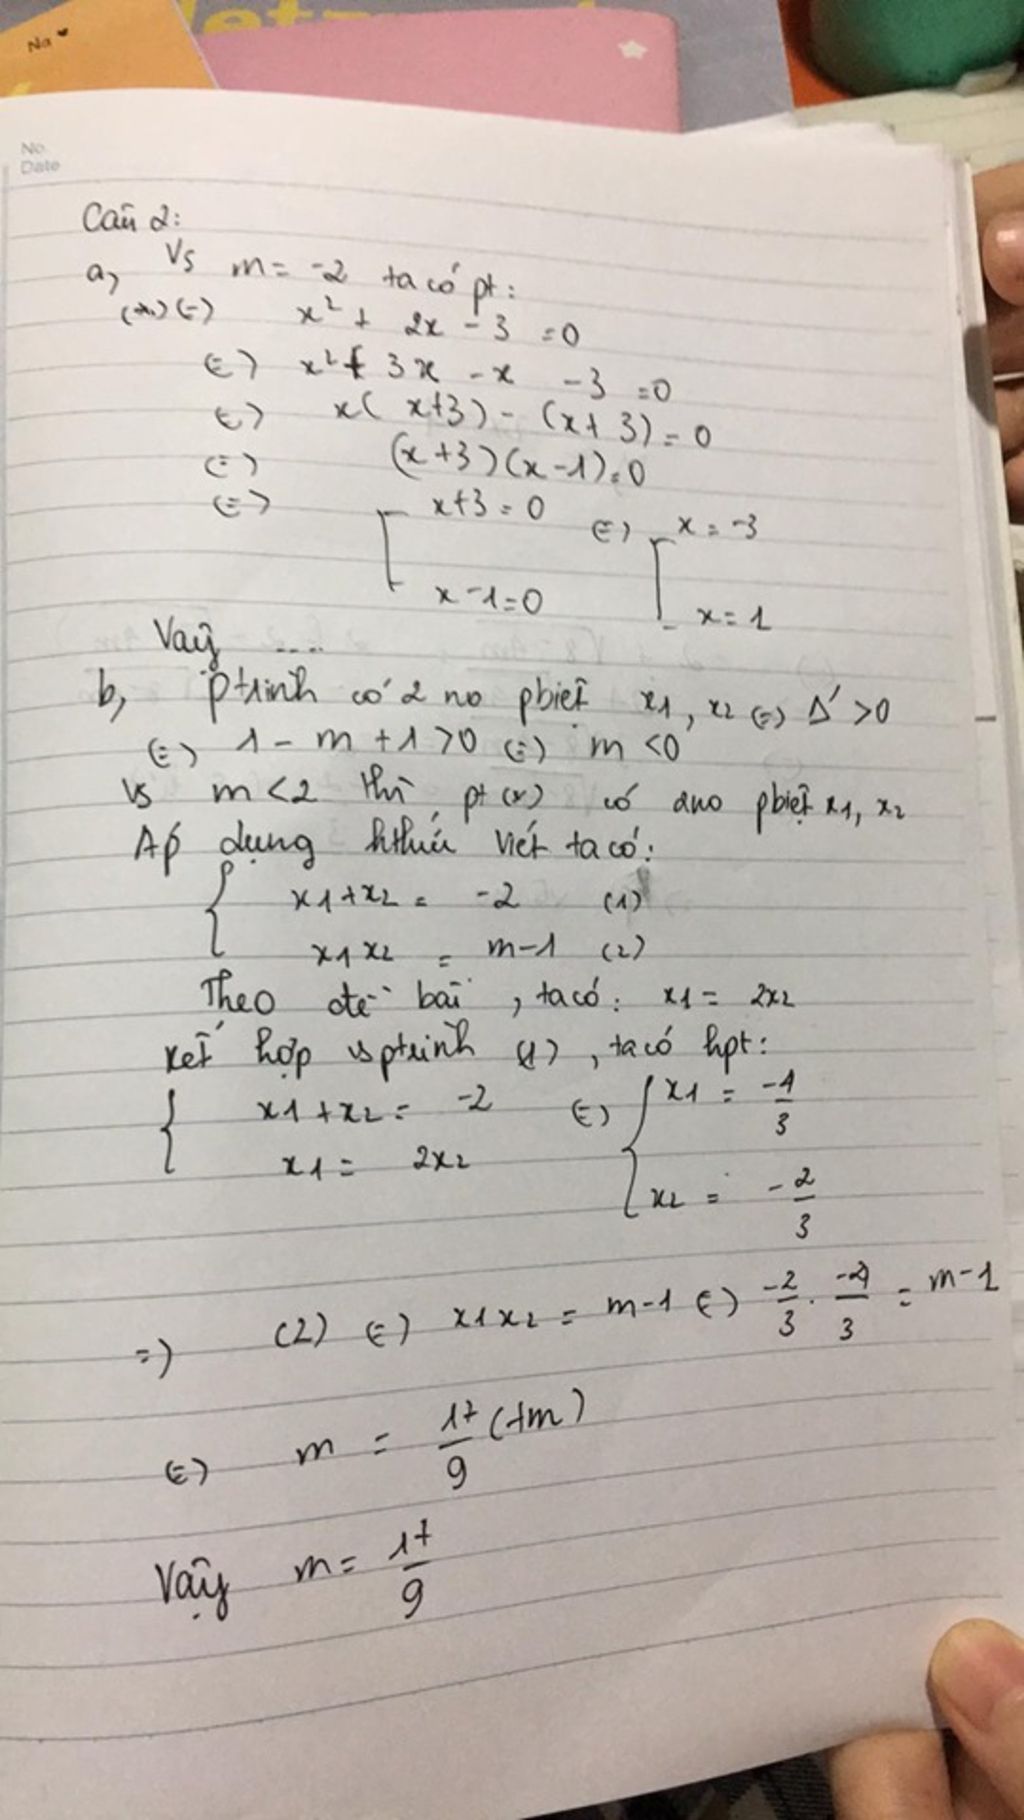 Na
No.
Date
Câu 2:
a, Vs m = -2 ta có pt:
(*) (=) x² + 2x - 3 = 0
(=) x² + 3x - x - 3 = 0
(=) x( x+3) - (x+ 3) = 0
(=) (x+3)(x-1)=0
(=) [ x+3 = 0 (=) [ x = -3
x-1=0 x = 1
Vậy ....
b, ptrình có 2 no pbiệt x1, x2 (=) Δ' >0
(=) 1 - m + 1 >0 (=) m <0
Vs m<2 thì pt (*) có 2no pbiệt x1, x2
Áp dụng hthức Viét ta có:
{ x1+x2 = -2 (1)
x1x2 = m-1 (2)
Theo đề bài, ta có: x1 = 2x2
Kết hợp vs ptrình (1), ta có hpt:
{ x1+x2 = -2 (=) { x1 = -4/3
x1 = 2x2 x2 = -2/3
=) (2) (=) x1x2 = m-1 (=) -2/3 . -4/3 = m-1
(=) m = 17/9 (tm)
Vậy m = 17/9